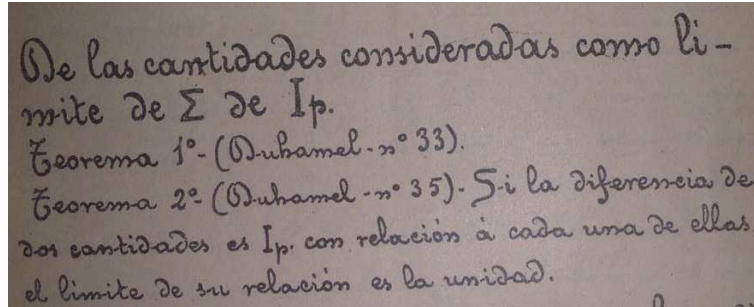 De las cantidades consideradas como lí-
mite de Σ de Ip.
Teorema 1º- (Duhamel - nº 33).
Teorema 2º- (Duhamel - nº 35) - Si la diferencia de
dos cantidades es Ip. con relación á cada una de ellas
el limite de su relación es la unidad.